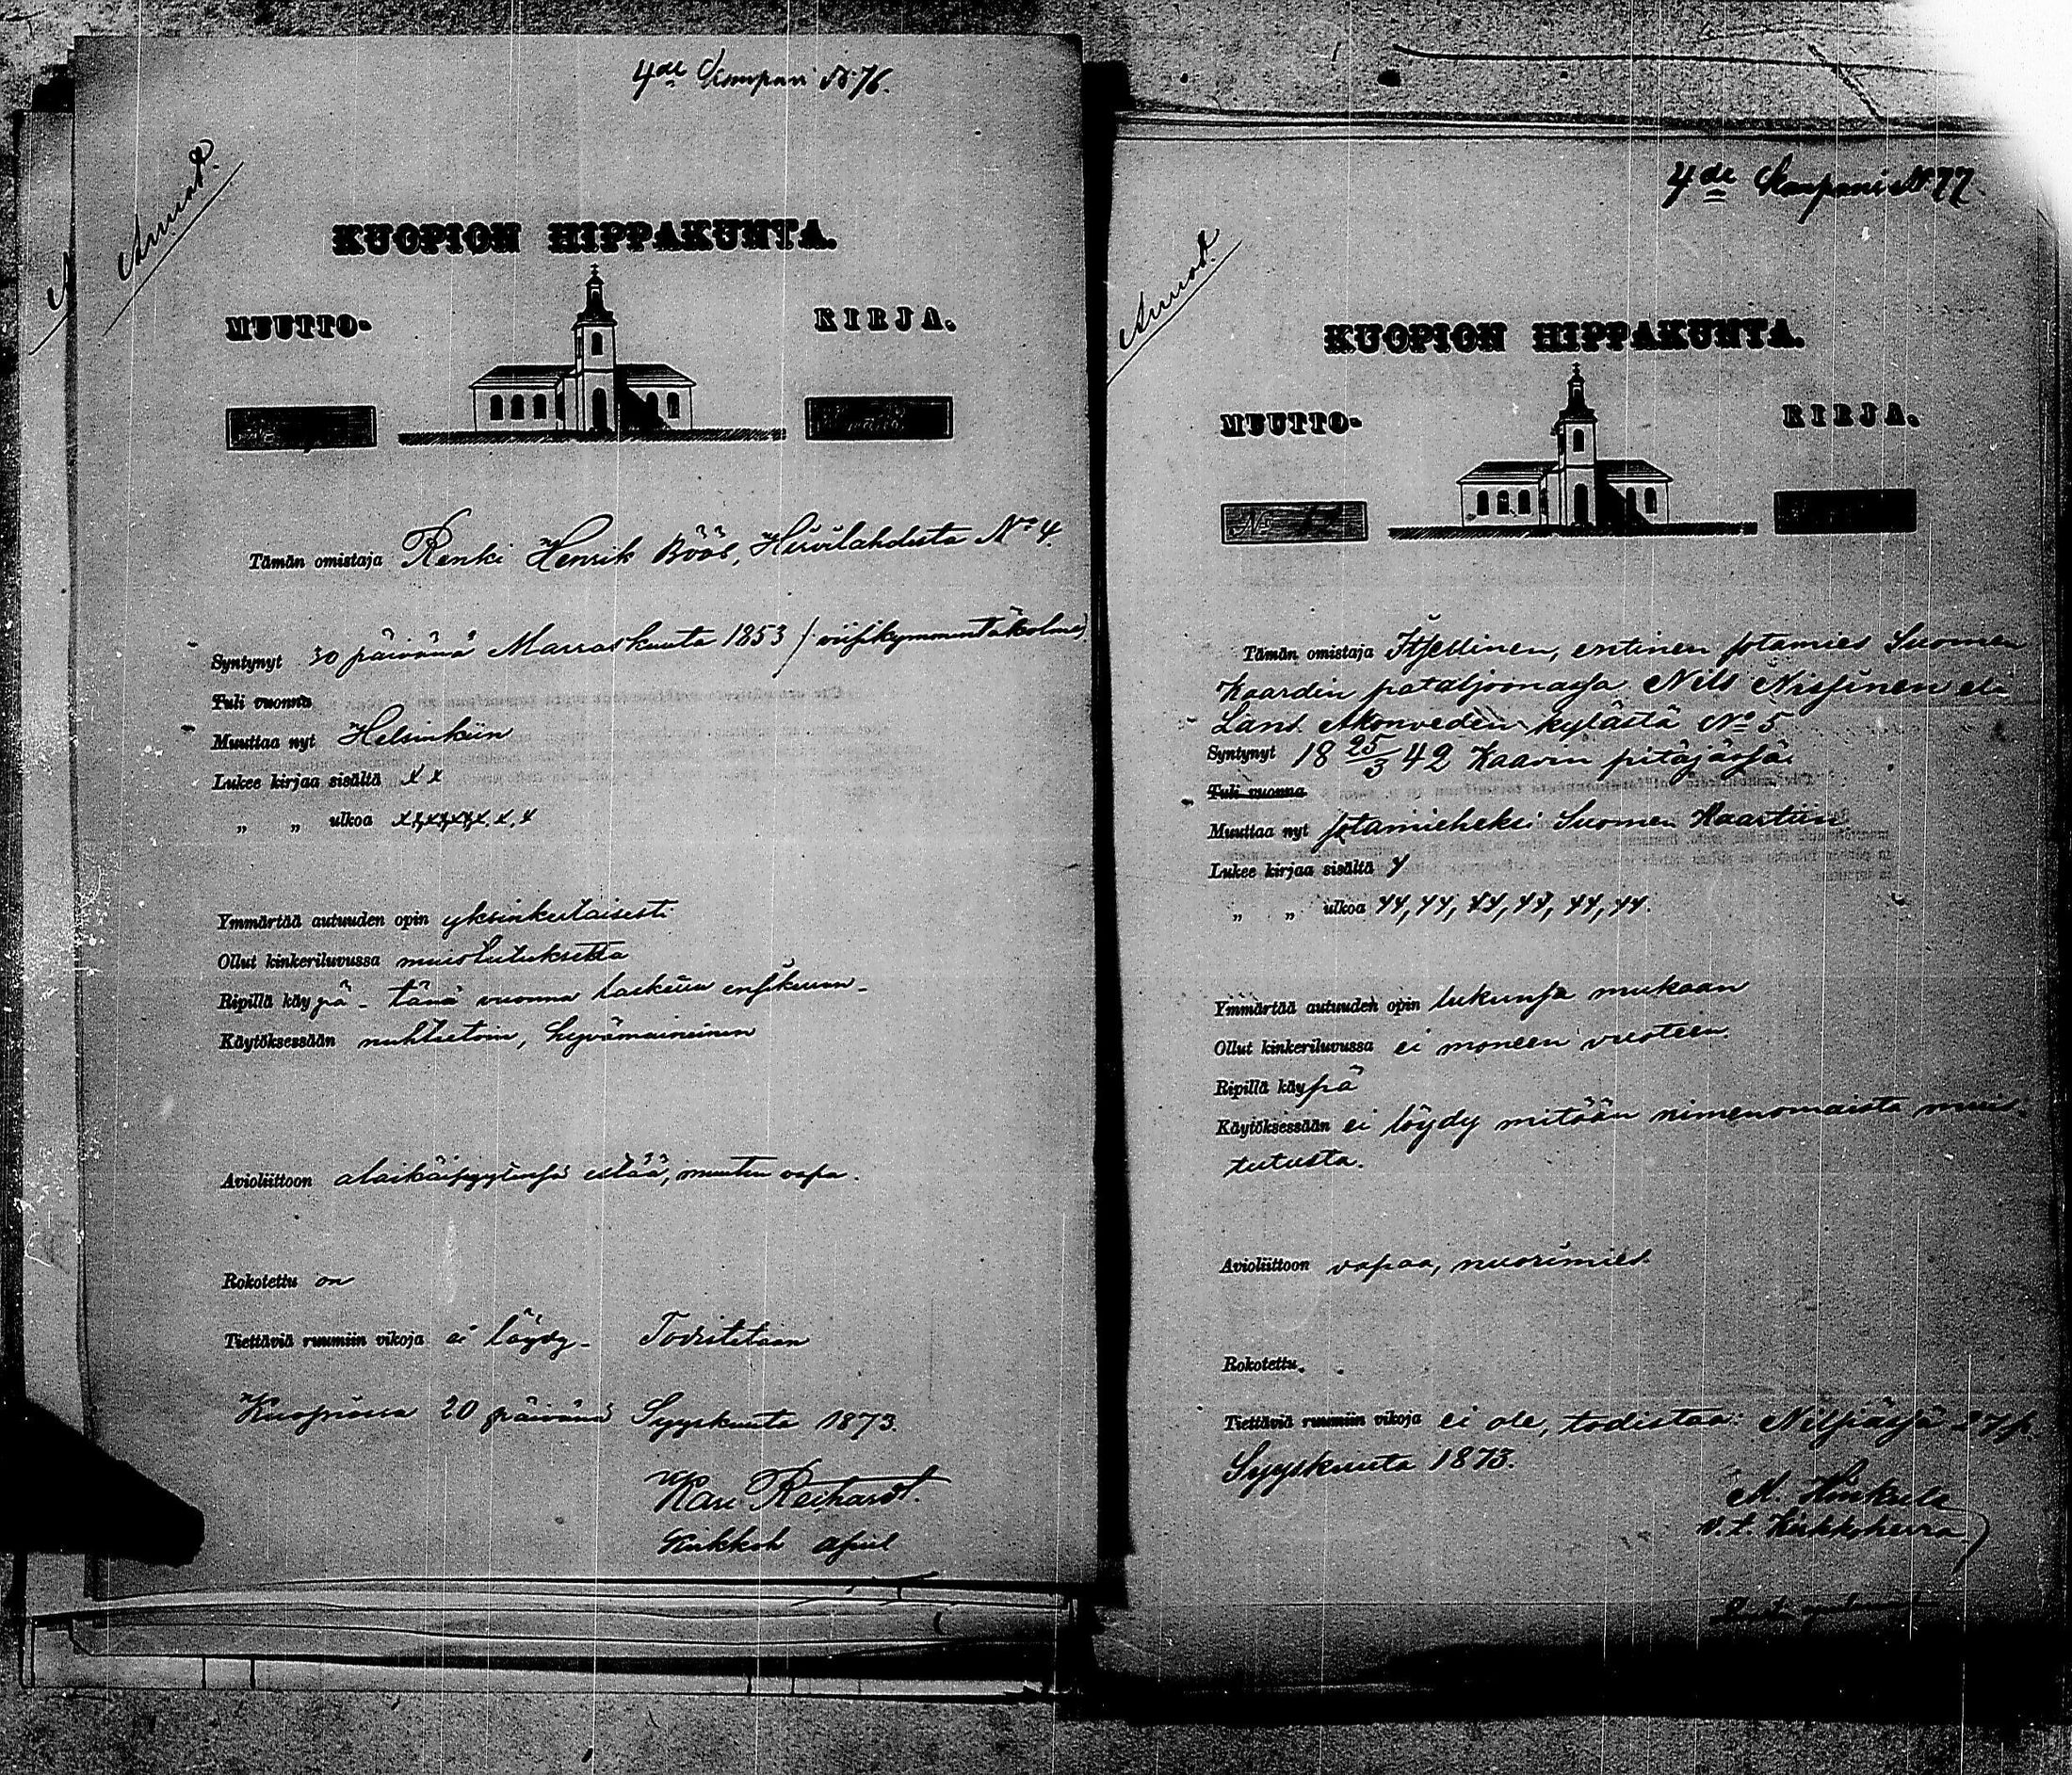 4de Kompani No 76.
Annot.
KUOPION HIPPAKUNTA.
MUUTTO- KIRJA.
Tämän omistaja Renki Henrik Bööb, Hirvilahdesta No 4.
Syntynyt 30 päivänä Marraskuuta 1853 / viisikymmentäkolme)
Tuli vuonna
Muuttaa nyt Helsinkiin
Lukee kirjaa sisältä x x
„ „ ulkoa
Ymmärtää autuuden opin yksinkertaisesti
Ollut kinkeriluvussa muistutuksetta
Ripillä käypä - tänä vuonna laskettu ensikerran -
Käytöksessään nuhteetoin, hyvämaineinen
Avioliittoon alaikäisyytensä estää, muuten vapa.
Rokotettu on
Tiettäviä ruumiin vikoja ei löydy - Todistetaan
Kuopiossa 20 päivänä Syyskuuta 1873.
Reihardt.
Kirkkoh apul
4de Kompani No 77
Annot.
KUOPION HIPPAKUNTA.
MUUTTO- KIRJA.
No
Tämän omistaja Itsellinen, entinen sotamies Suomen
Kaardin pataljoonassa Nils Nissinen
Akonveden kylästä No 5
Syntynyt 18 25/3 42 Kaavin pitäjässä.
Tuli vuonna
Muuttaa nyt sotamieheksi Suomen Kaartiin
Lukee kirjaa sisältä y
„ „ ulkoa yy, yy, yy, yy, yy, yy.
Ymmärtää autuuden opin lukunsa mukaan
Ollut kinkeriluvussa ei moneen vuoteen.
Ripillä käypä
Käytöksessään ei löydy mitään nimenomaista muis-
tutusta.
Avioliittoon vapaa, nuorimies.
Rokotettu.
Tiettäviä ruumiin vikoja ei ole, todistaa: Nilsiässä 27 p.
Syyskuuta 1873.
M.
v. t. Kirkkoherra